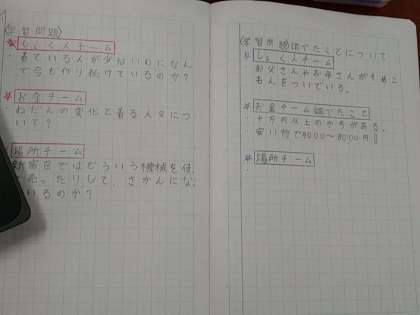 (学習問題)
*しょく人チーム
・着ている人が少ないのになん
で今も作り続けているのか?
*お金チーム
ねだんの変化と着る人々につ
いて?
場所チーム
新宿区ではどういう機械を使
ったりして、さかんにな
いるのか?
(学習問題)調べたことについて
*しょく人チーム
お父さんやお母さんが
もんをついでいる。
*お金チーム調べたこと
・十万円以上のや万がある。
安い物で4000~8000円
*場所チーム